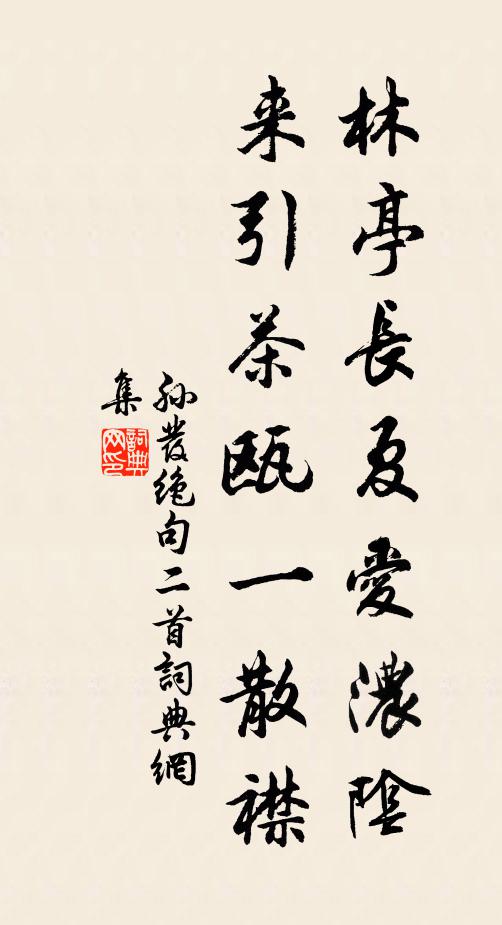 林亭長夏愛濃陰
来引茶甌一散襟
孙發絶句二首詞典網
集
詞典
网印